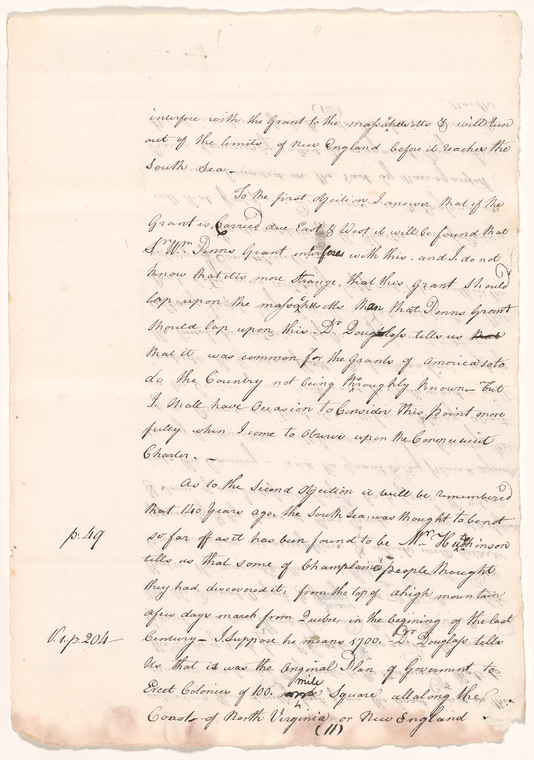 interfere with the Grant to the massachusetts & will run
out of the limits of New England before it reaches the
South Sea.
To the first objection I answer that if the
Grant is Carried due East & West it will be found that
Sr. Wm. Penns Grant interferes with this. and I do not
know that it is more strange, that this Grant should
lap upon the massachusetts than that Penns Grant
should lap upon this. Dr. Douglass tells us that
that it was common for the Grants of America so to
do the Country not being throughly known. But
I shall have Occasion to Consider this point more
fully when I come to observe upon the Connecticut
Charter.
As to the Second objection it will be remembered
that 140 Years ago, the South Sea, was thought to be not
p. 49
so far off as it has been found to be Mr. Hutchinson
tells us that some of Champlain's people thought
they had discovered it, from the top of a high mountain
a few days march from Quebec, in the begining of the last
V. 1. p. 204
Century – I suppose he means 1700. Dr. Douglass tells
Us that it was the Original Plan of Goverment to
Erect Colonies of 100. mile Square all along the
Coasts of North Virginia or New England
(11)